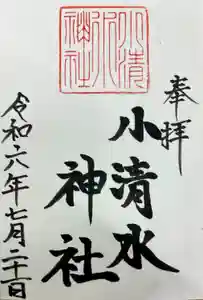 奉拝
小清水
神社
令和六年七月二十一日
小清水神社